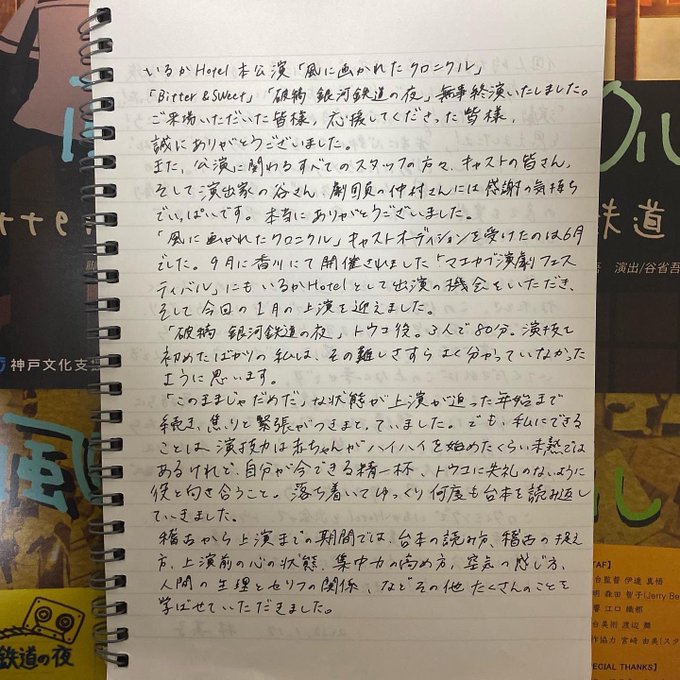 いるかHotel 本公演「風に画かれたクロニクル」
「Bitter & Sweet」「破稿 銀河鉄道の夜」無事終演いたしました。
ご来場いただいた皆様、応援してくださった皆様、
誠にありがとうございました。
また、公演に関わるすべてのスタッフの方々、キャストの皆さん、
そして演出家の谷さん、劇団員の仲村さんには感謝の気持ち
でいっぱいです。本当にありがとうございました。
「風に画かれたクロニクル」キャストオーディションを受けたのは6月
でした。9月に香川にて開催されました「マエカブ演劇フェス
ティバル」にもいるかHotelとして出演の機会をいただき、
そして今回の1月の上演を迎えました。
「破稿 銀河鉄道の夜」トウコ役。3人で80分。演技を
初めたばかりの私は、その難しさすらよく分かっていなかった
ように思います。
「このままじゃだめだ」な状態が上演が迫った年始まで
続き、焦りと緊張がつきまとっていました。でも、私にできる
ことは、演技力は赤ちゃんがハイハイを始めたくらい未熟では
あるけれど、自分が今できる精一杯、トウコに失礼のないように
役と向き合うこと。落ち着いてゆっくり何度も台本を読み返し
ていきました。
稽古から上演までの期間では、台本の読み方、稽古の捉え
方、上演前の心の状態、集中力の高め方、空気の感じ方、
人間の生理とセリフの関係、などその他たくさんのことを
学ばせていただきました。
クル
鉄道
演出/谷省吾
神戸文化支
風
ル
鉄道の夜
TAF】
台監督 伊達 真悟
明 森田 智子(Jerry Be
響 江口 織都
台美術 渡辺 舞
作協力 宮崎 由美(スタ
PECIAL THANKS】